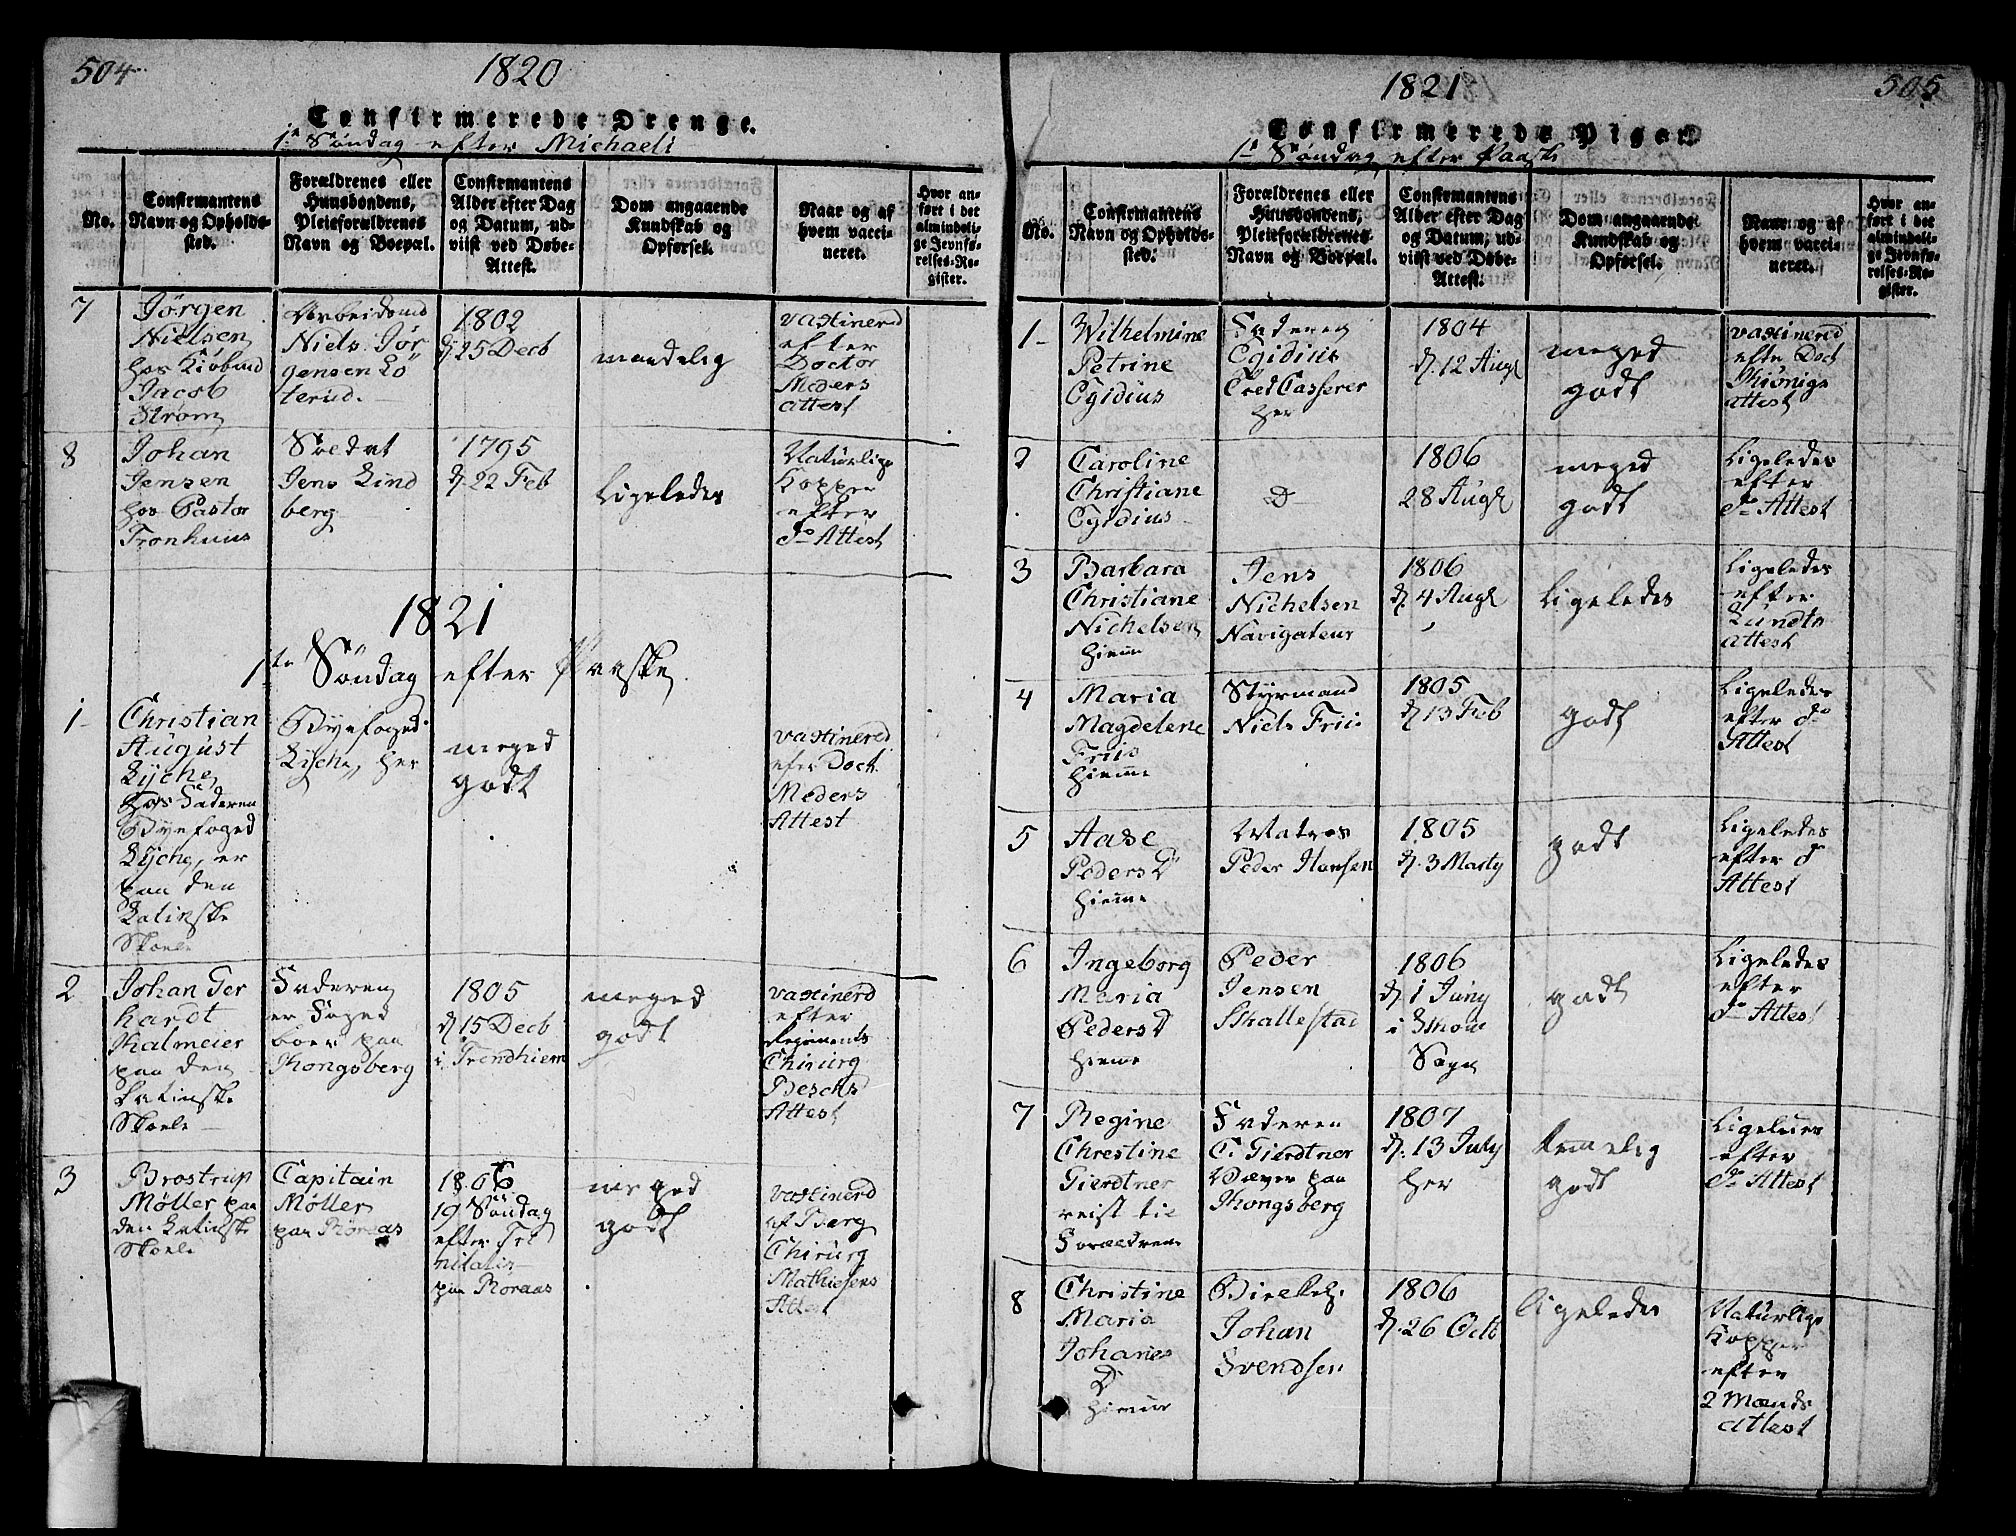 504
1820
Confirmerede Drenge.
1ͤ Søndag efter Michaeli
No.
Confirmantens
Navn og Opholds-
sted.
Forældrenes eller
Huusbondens,
Pleieforældrenes
Navn og Boepæl.
Confirmantens
Alder efter Dag
og Datum, ud-
viist ved Døbe-
Attest.
Dom angaaende
Kundskab og
Opførsel.
Naar og af
hvem vacci-
neret.
Hvor an-
ført i det
almindeli-
ge Jevnfø-
relses-Re-
gister.
7
Jørgen
Nielsen
hos Kiøbmd
Jacob
Strøm
Arbeidsmd
Niels Jør
gensen Lö
terud.
1802
d. 25 Decb
maadelig
vaxinered
efter
Doctor
Møders
attest
8
Johan
Jensen
hos Pastor
Tronhuus
Soldat
Jens Lind
berg
1795
d. 22 Feb
Ligeledes
Naturlige
Kopper
efter
do Attest
1821
1te Søndag efter Paaske
1
Christian
August
Lyche
hos Faderen
Byefoged
Lyche, er
paa den
Latinske
Skoele
Byefoged
Lyche, her
meged
godt
vaxinered
efter Doct.
Meders
Attest
2
Johan Ger
hardt
Kalmeier
paa den
Latinske
Skoele
Faderen
er Foged
boer paa
Kongsberg
1805
d. 15 Decb
i Trondhiem
meged
godt
vaxinerd
efter
Regiments
Chirurg
Beschs
Attest
3
Brostrup
Møller paa
den Latinske
Skoele
Capitain
Møller
paa Röraas
1806
19 Söndag
efter Tri
nitatis
paa Roraas
meged
godt
vaxinerd
af Berg
Chirurg
Mathiesens
Attest
505
1821
Confirmerede Piger.
1ͤ Søndag efter Paaske
No.
Confirmantens
Navn og Opholds-
sted.
Forældrenes eller
Huusbondens,
Pleieforældrenes
Navn og Boepæl.
Confirmantens
Alder efter Dag
og Datum, ud-
viist ved Døbe-
Attest.
Dom angaaende
Kundskab og
Opførsel.
Naar og af
hvem vacci-
neret.
Hvor an-
ført i det
almindeli-
ge Jevnfø-
relses-Re-
gister.
1
Wilhelmine
Petrine
Egidius
Faderen
Egidius
Cred Casserer
her
1804
d. 12 Augt
meged
godt
vaxinered
efter Doct
attest
2
Caroline
Christiane
Egidius
D
1806
28 Augt
meged
godt
Ligeledes
efter
do Attest
3
Barbara
Christiane
Nichelsen
hiemme
Jens
Nichelsen
Navigateur
1806
d. 4 Augt
Ligeledes
Ligeledes
efter
Lundts
attest
4
Maria
Magdelene
Friis
hiemme
Styrmand
Niels Friis
1805
d. 13 Feb
godt
Ligeledes
efter do
Attest
5
Aase
Peders D
hiemme
Matros
Peder Hansen
1805
d. 3 Marty
godt
Ligeledes
efter do
Attest
6
Ingeborg
Maria
Peders D
hieme
Peder
Jensen
Skallestad
1806
d. 1 Juny
i Skou
Sogn
godt
Ligeledes
efter
do Attest
7
Regine
Chrestine
Gierdtner
reist til
Forældrene
Faderen
C. Gierdtner
Væver paa
Kongsberg
1807
d. 13 July
her
temmelig
godt
Ligeledes
efter
do Attest
8
Christine
Maria
Johanes
D
hieme
Johan
Svendsen
1806
d. 26 Octb
Ligeledes
Naturlige
Kopper
efter
2 Mænds
Attest